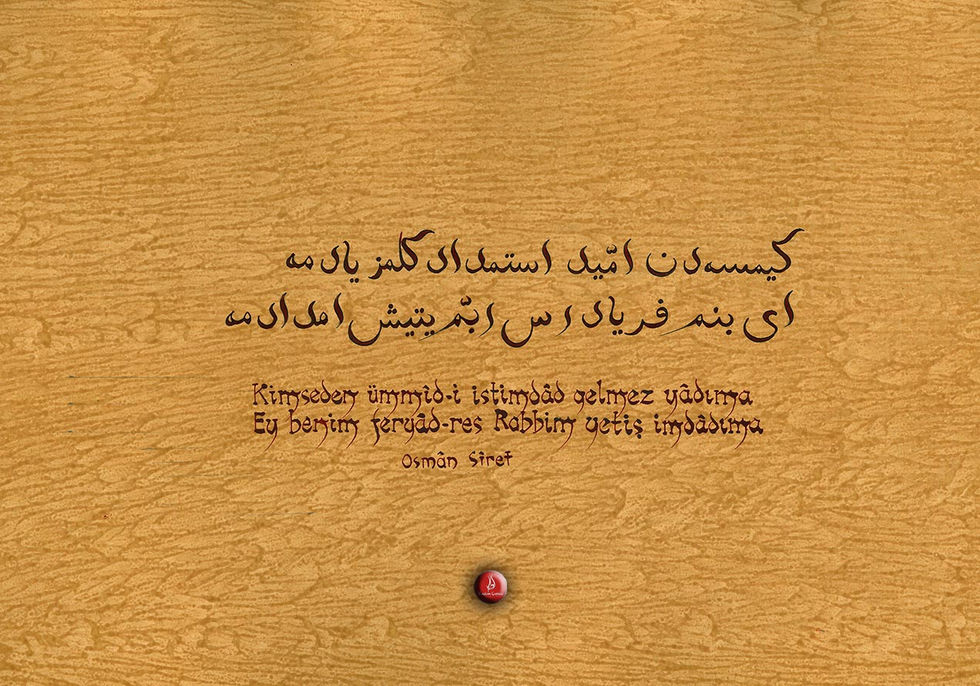 كیمسه‌دن امّید استمداد كلمز یادمه
ای بنم فریاد رس ربّم یتیش امدادمه
Kimseden ümmîd-i istimdâd gelmez yâdıma
Ey benim feryâd-res Rabbim yetiş imdâdıma
Osmân Sîret